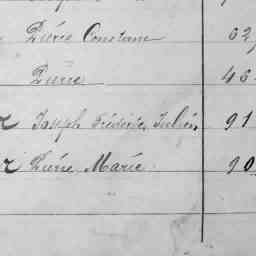 Pierre Constant 62
Pierre 46
r Joseph Frédéric Julien, 91
r Pierre Marie 90